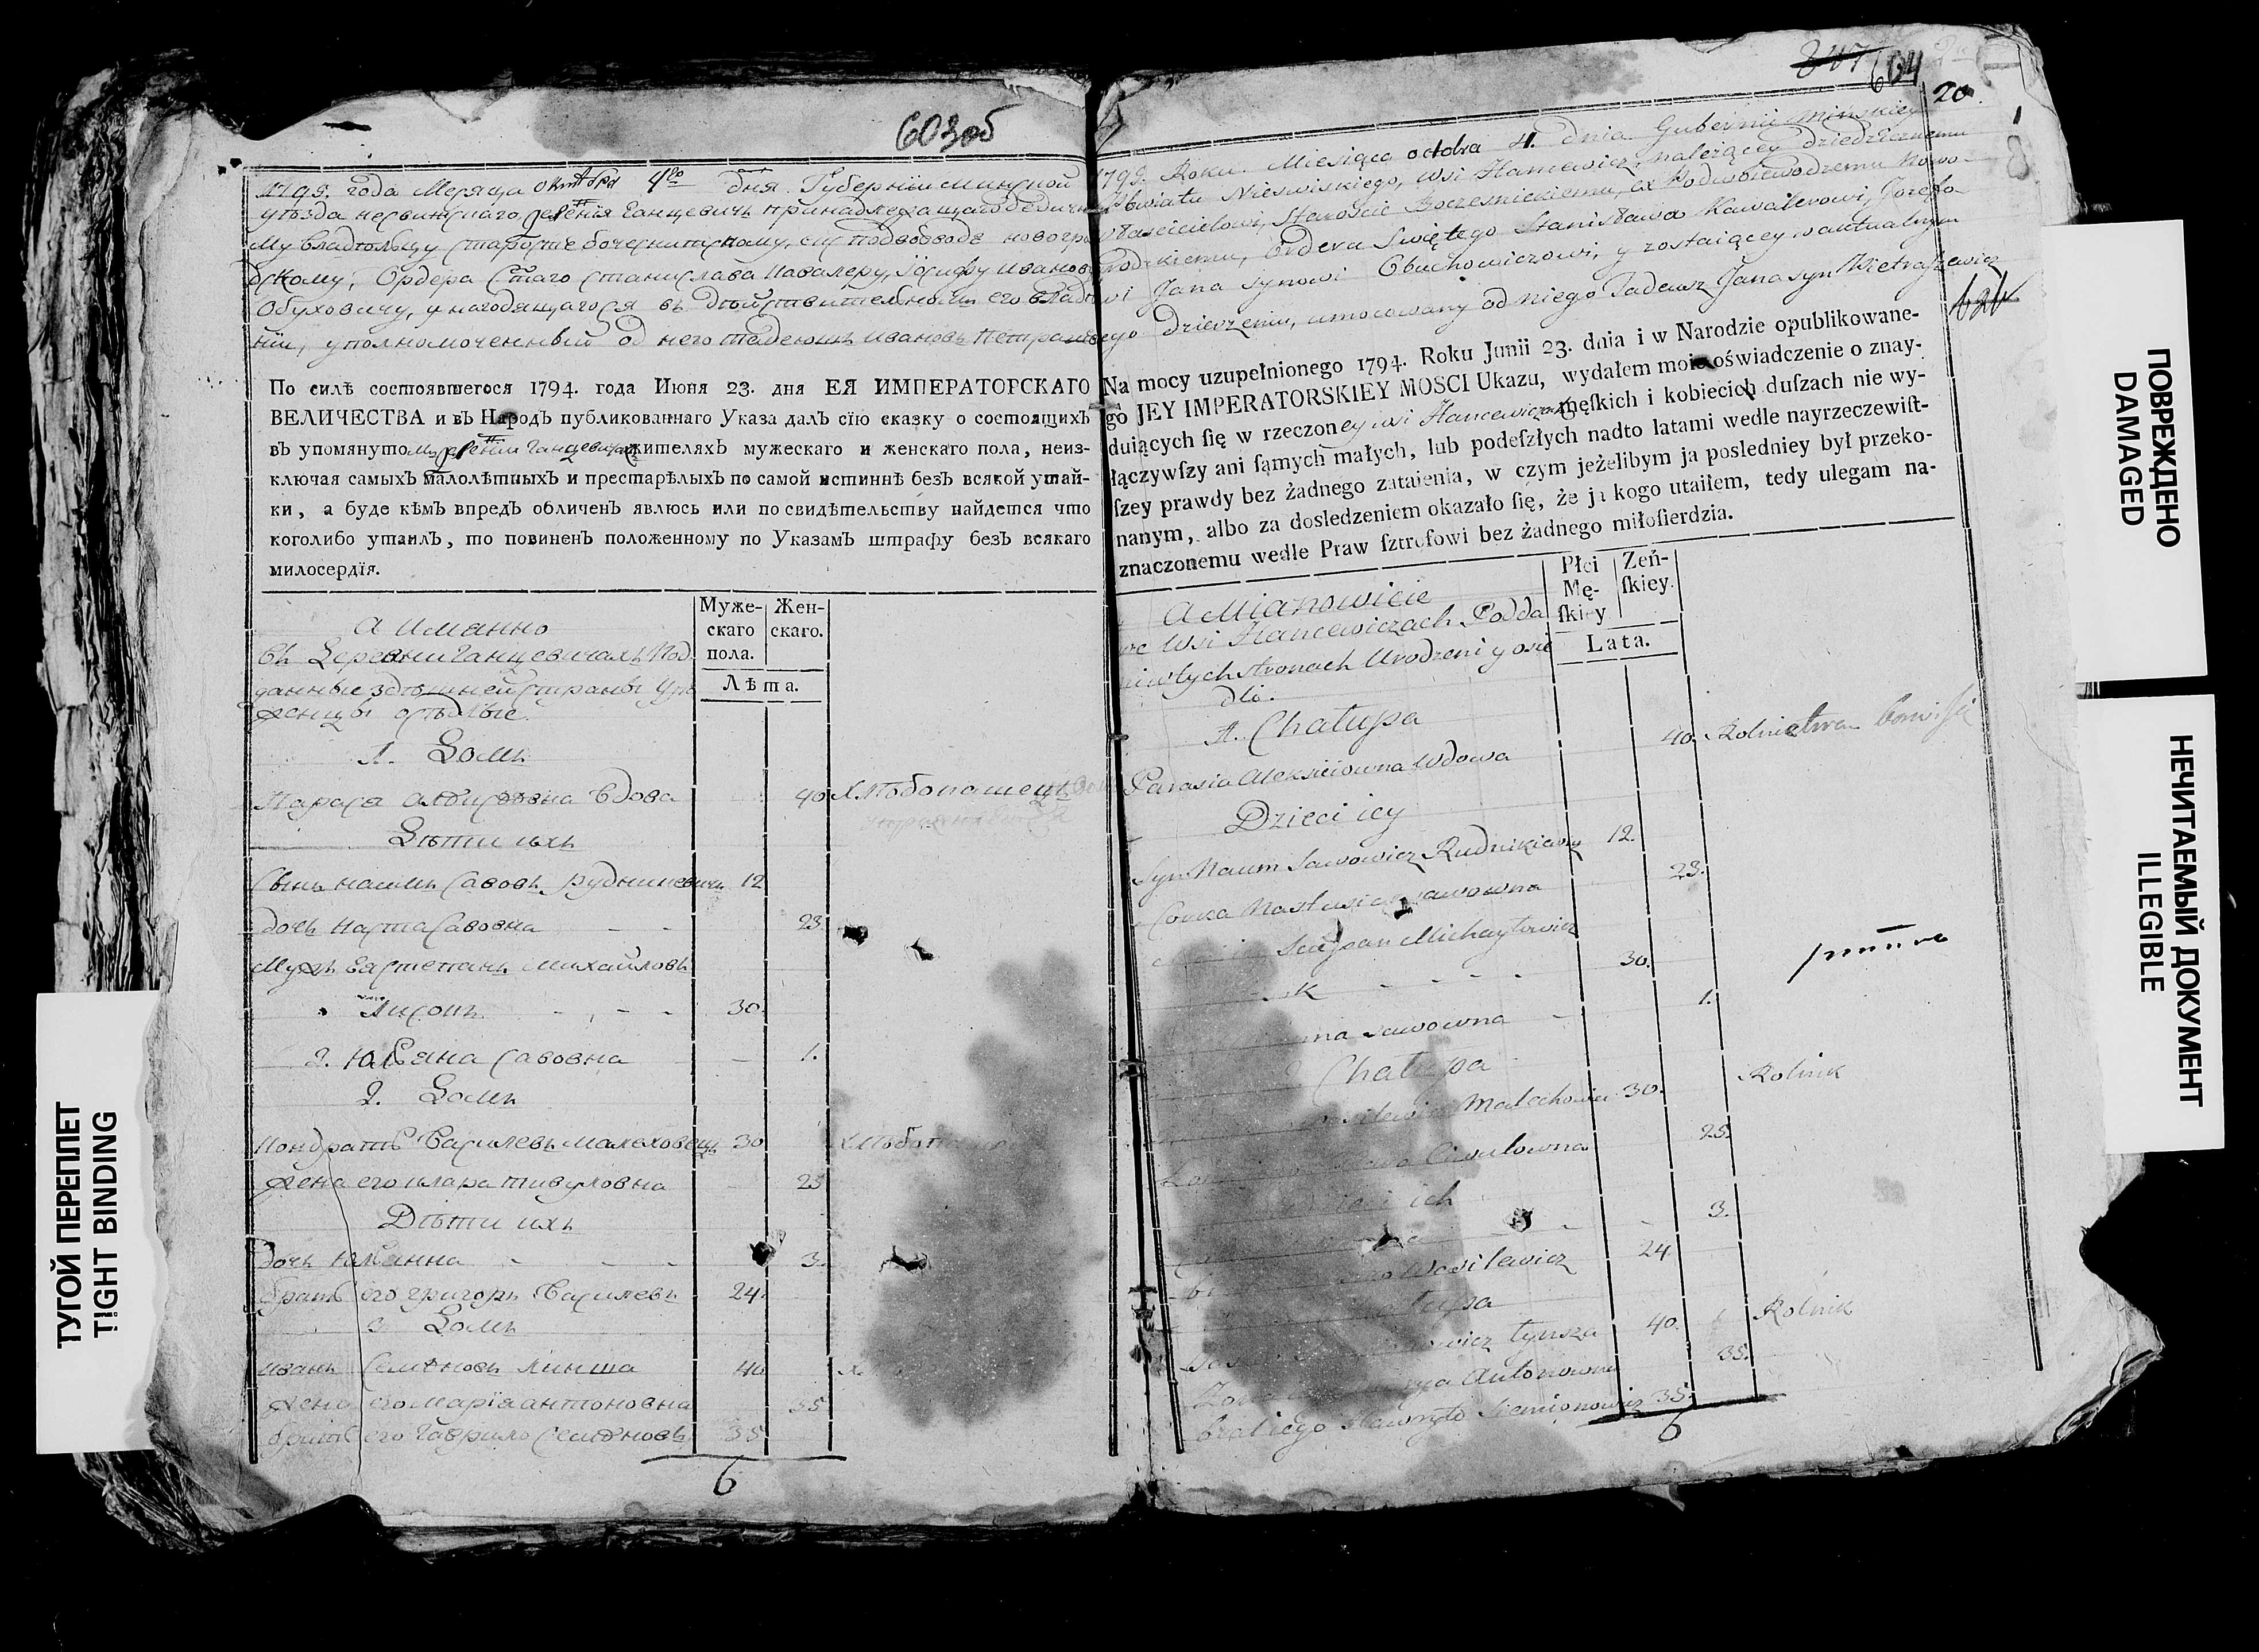 603об
1795. года Месяца октября 4го дня Губернии минской
уезда несвижскаго, деревня Ганцевичь принадлежащаго дедично
му владельцу старосте бочерницкому, екс подвоеводе новогро
дскому, Ордера Стаго станислава кавалеру, Иосифу иванов
Обуховичу, и находящагося въ действительномъ его владе
нии, уполномоченный од него тадеюшъ ивановъ петраш
По силѣ состоявшегося 1794. года Июня 23. дня ЕЯ ИМПЕРАТОРСКАГО
ВЕЛИЧЕСТВА и въ Народъ публикованнаго Указа далъ сїю сказку о состоящихъ
въ упомянутомъ деревни Ганцевичахъ жителяхъ мужескаго и женскаго пола, неиз-
ключая самыхъ малолѣтныхъ и престарѣлыхъ по самой истиннѣ безъ всякой утай-
ки, а буде кѣмъ впредъ обличенъ явлюсь или по свидѣтельству найдется что
коголибо утаилъ, то повиненъ положенному по Указамъ штрафу безъ всякаго
милосердїя.
Муже-
скаго
пола.
Жен-
скаго.
Лѣта.
А иманно
въ Деревни Ганцевичахъ Под
данные здешней стараны уро
женцы оседлые.
1. Домъ
Парася алексеовна вдова 40 Хлебопашецъ
Дети ихъ
Сынъ наумъ Савовъ рудникевичъ 12
дочь Наста Савовна - - 23
Мужъ Ея степанъ михайловъ
Лисокъ - - - 30
2. Юлеана савовна - 1.
2. Домъ
Кондратъ Василевъ малаховецъ 30 Хлебопа
жена его клара тивуловна 25
Дѣти ихъ
дочь Юлеанна - - - 3.
братъ его григоръ Василевъ 24.
3 Домъ
иванъ Семеновъ линша 40
жена его марїя антоновна 35
братъ его Гаврило Семеновъ 35
6
847 604
20
1795. Roku. Miesiąca octobra 4. dnia Gubernii Minskiey
Powiatu Nieswiskiego, wsi Hancewicz, należącey dziedzicznemu
Włascicielowi, Staroscie Boczesnickiemu, ex Podwoiewodzemu Nowo-
grodzkiemu, Ordera Swiętego Stanisława Kawalerowi, Jozefo-
wi Jana synowi Obuchowiczowi, y zostaiącey w aktualnym
iego dzierzeniu, umocowany od niego Tadeusz Jana syn Pietraszewicz
Na mocy uzupełnionego 1794. Roku Junii 23. dnia i w Narodzie opublikowane-
go JEY IMPERATORSKIEY MOSCI Ukazu, wydałem moie oświadczenie o znay-
duiących ſię w rzeczoney wsi Hancewiczach męſkich i kobiecich duſzach nie wy-
łączywſzy ani ſamych małych, lub podeſzłych nadto latami wedle nayrzeczewiſt-
ſzey prawdy bez żadnego zataienia, w czym jeżelibym ja posledniey był przeko-
nanym, albo za dosledzeniem okazało ſię, że ja kogo utaiłem, tedy ulegam na-
znaczonemu wedle Praw ſztrofowi bez żadnego miłoſierdzia.
Płci
Mę-
ſkiey
Zeń-
ſkiey.
Lata.
A Mianowicie
we Wsi Hancewiczach Podda
ni w tych stronach Urodzeni y osie
dli.
1. Chałupa
Parasia Alexieiowna Wdowa 40. Rolnictwem bawi się
Dzieci iey
Syn Naum Sawowicz Rudnikiewicz 12.
Corka Nastusia Sawowna 23.
Scepan Michayłowicz
- - - - 30.
na Sawowna - 1.
2 Chałupa
silewicz Małechowiec 30. Rolnik
Ciwulowna 25.
Dzieci ich
- - 3.
Wasilewicz 24
Chałupa
owicz łynsza 40. Rolnik
Zona Marya Antonowna 35.
brat iego Hawryło Siemionowicz 35.
6
ПОВРЕЖДЕНО
DAMAGED
НЕЧИТАЕМЫЙ ДОКУМЕНТ
ILLEGIBLE
ТУГОЙ ПЕРЕПЛЕТ
TIGHT BINDING